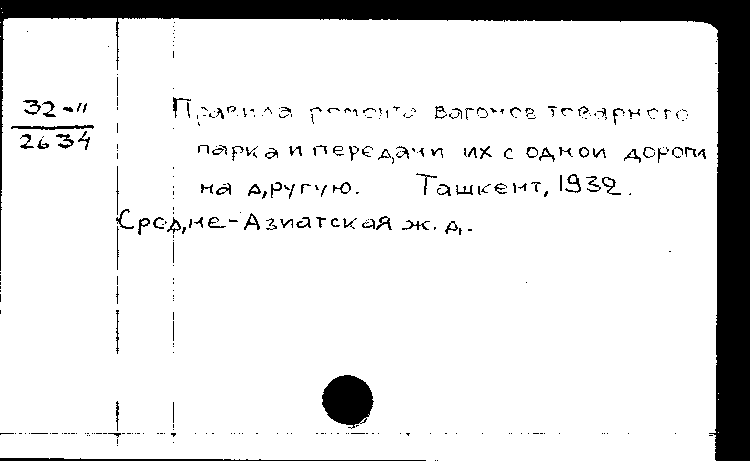 32-11
2634
Правила ремонта вагонов товарного
парка и передачи их с одной дороги
на другую. Ташкент, 1932.
Средне-Азиатская ж. д.